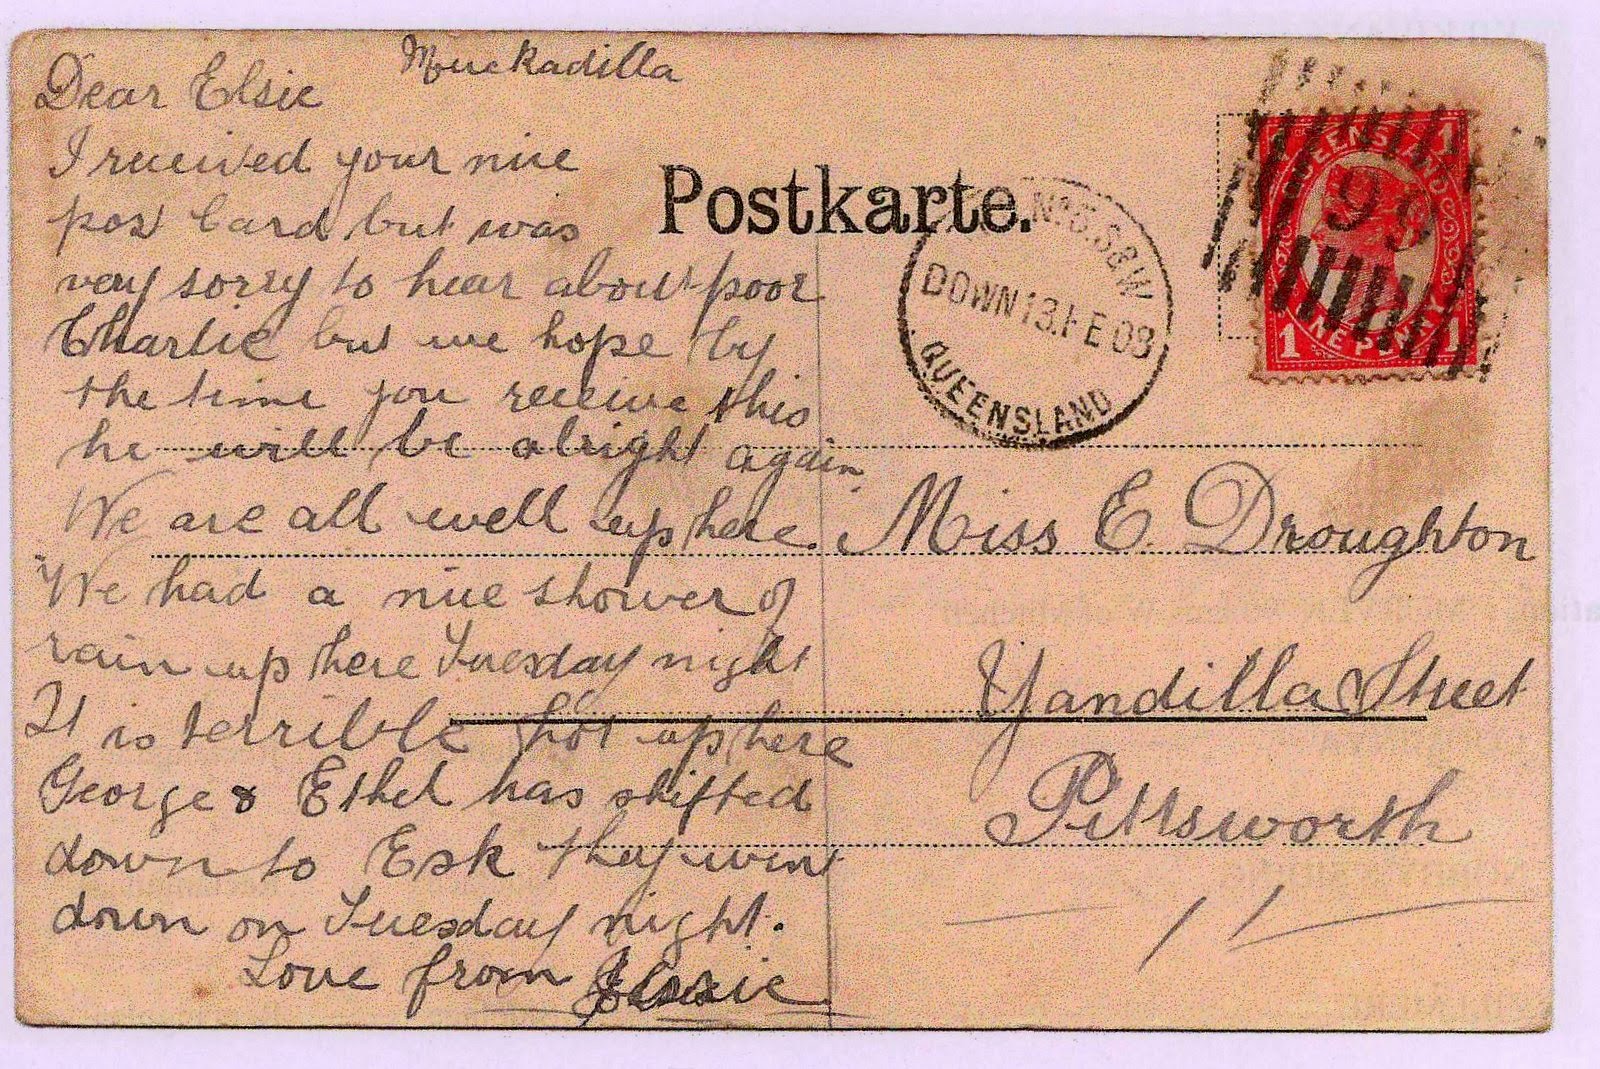 Muckadilla
Dear Elsie
I received your nice
pos Card but was
very sorry to hear about poor
Charlie but we hope by
the time you receive this
he will be alright again
We are all well up here.
We had a nice shower of
rain up here Tuesday night
It is terrible hot up here
George & Ethel has shifted
down to Esk they went
down on Tuesday night.
Love from
Postkarte.
No.6.S&W
DOWN 13.FE 08
QUEENSLAND
QUEENSLAND
1 1
99
1 ONE PENNY 1
Miss E. Droughton
Yandilla Street
Pittsworth